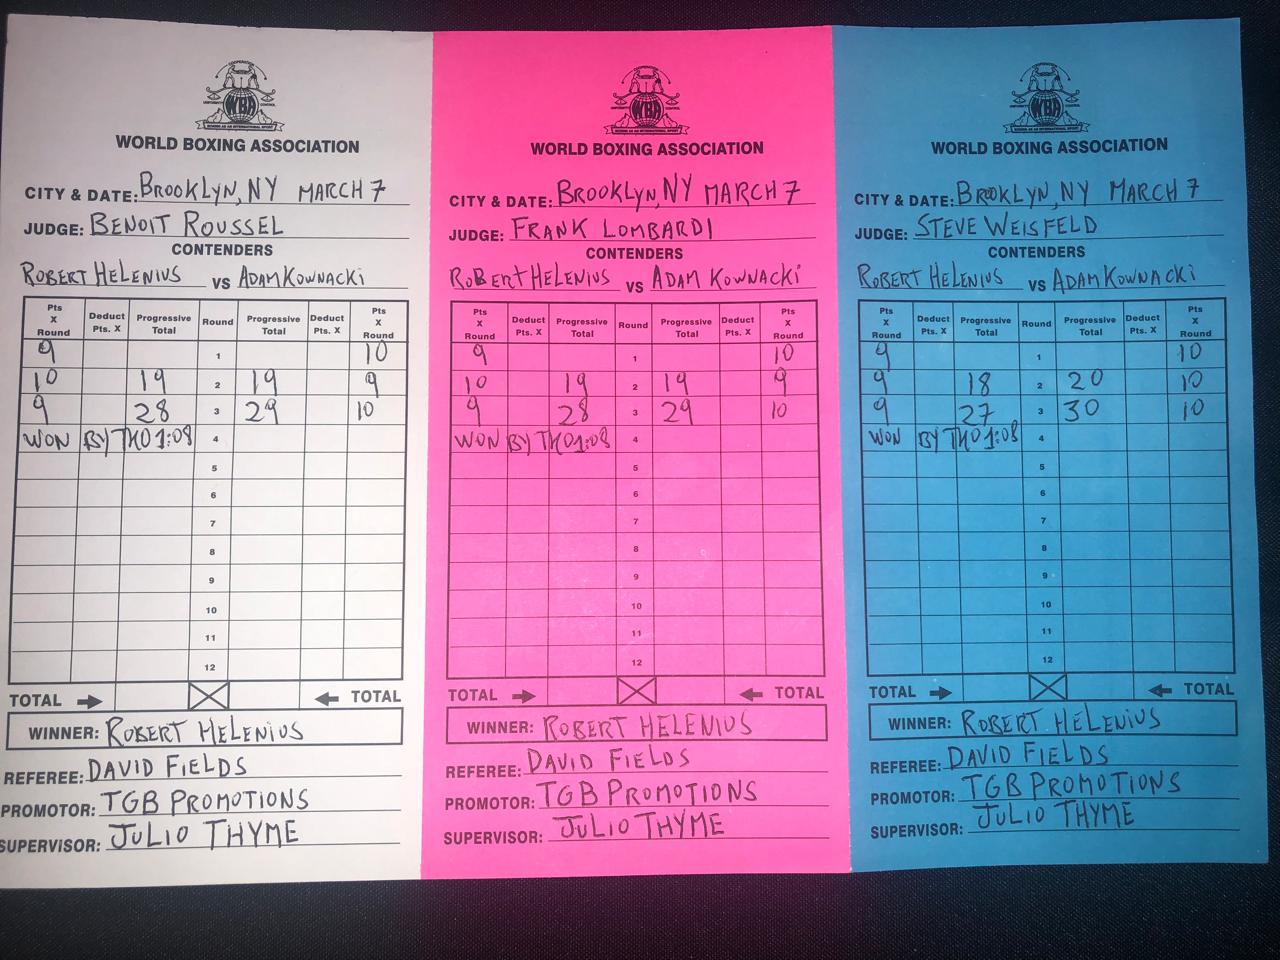 COOPERATION
UNIFORMITY CONTROL
WBA
BOXING AS AN INTERNATIONAL SPORT
WORLD BOXING ASSOCIATION
CITY & DATE: BROOKLYN, NY MARCH 7
JUDGE: BENOIT ROUSSEL
CONTENDERS
ROBERT HELENIUS VS ADAM KOWNACKI
Pts X Round Deduct Pts. X Progressive Total Round Progressive Total Deduct Pts. X Pts X Round
9 1 10
10 19 2 19 9
9 28 3 29 10
WON BY TKO 1:08 4
5
6
7
8
9
10
11
12
TOTAL TOTAL
WINNER: ROBERT HELENIUS
REFEREE: DAVID FIELDS
PROMOTOR: TGB PROMOTIONS
SUPERVISOR: JULIO THYME
COOPERATION
UNIFORMITY CONTROL
WBA
BOXING AS AN INTERNATIONAL SPORT
WORLD BOXING ASSOCIATION
CITY & DATE: BROOKLYN, NY MARCH 7
JUDGE: FRANK LOMBARDI
CONTENDERS
ROBERT HELENIUS VS ADAM KOWNACKI
Pts X Round Deduct Pts. X Progressive Total Round Progressive Total Deduct Pts. X Pts X Round
9 1 10
10 19 2 19 9
9 28 3 29 10
WON BY TKO 1:08 4
5
6
7
8
9
10
11
12
TOTAL TOTAL
WINNER: ROBERT HELENIUS
REFEREE: DAVID FIELDS
PROMOTOR: TGB PROMOTIONS
SUPERVISOR: JULIO THYME
COOPERATION
UNIFORMITY CONTROL
WBA
BOXING AS AN INTERNATIONAL SPORT
WORLD BOXING ASSOCIATION
CITY & DATE: BROOKLYN, NY MARCH 7
JUDGE: STEVE WEISFELD
CONTENDERS
ROBERT HELENIUS VS ADAM KOWNACKI
Pts X Round Deduct Pts. X Progressive Total Round Progressive Total Deduct Pts. X Pts X Round
9 1 10
9 18 2 20 10
9 27 3 30 10
WON BY TKO 1:08 4
5
6
7
8
9
10
11
12
TOTAL TOTAL
WINNER: ROBERT HELENIUS
REFEREE: DAVID FIELDS
PROMOTOR: TGB PROMOTIONS
SUPERVISOR: JULIO THYME